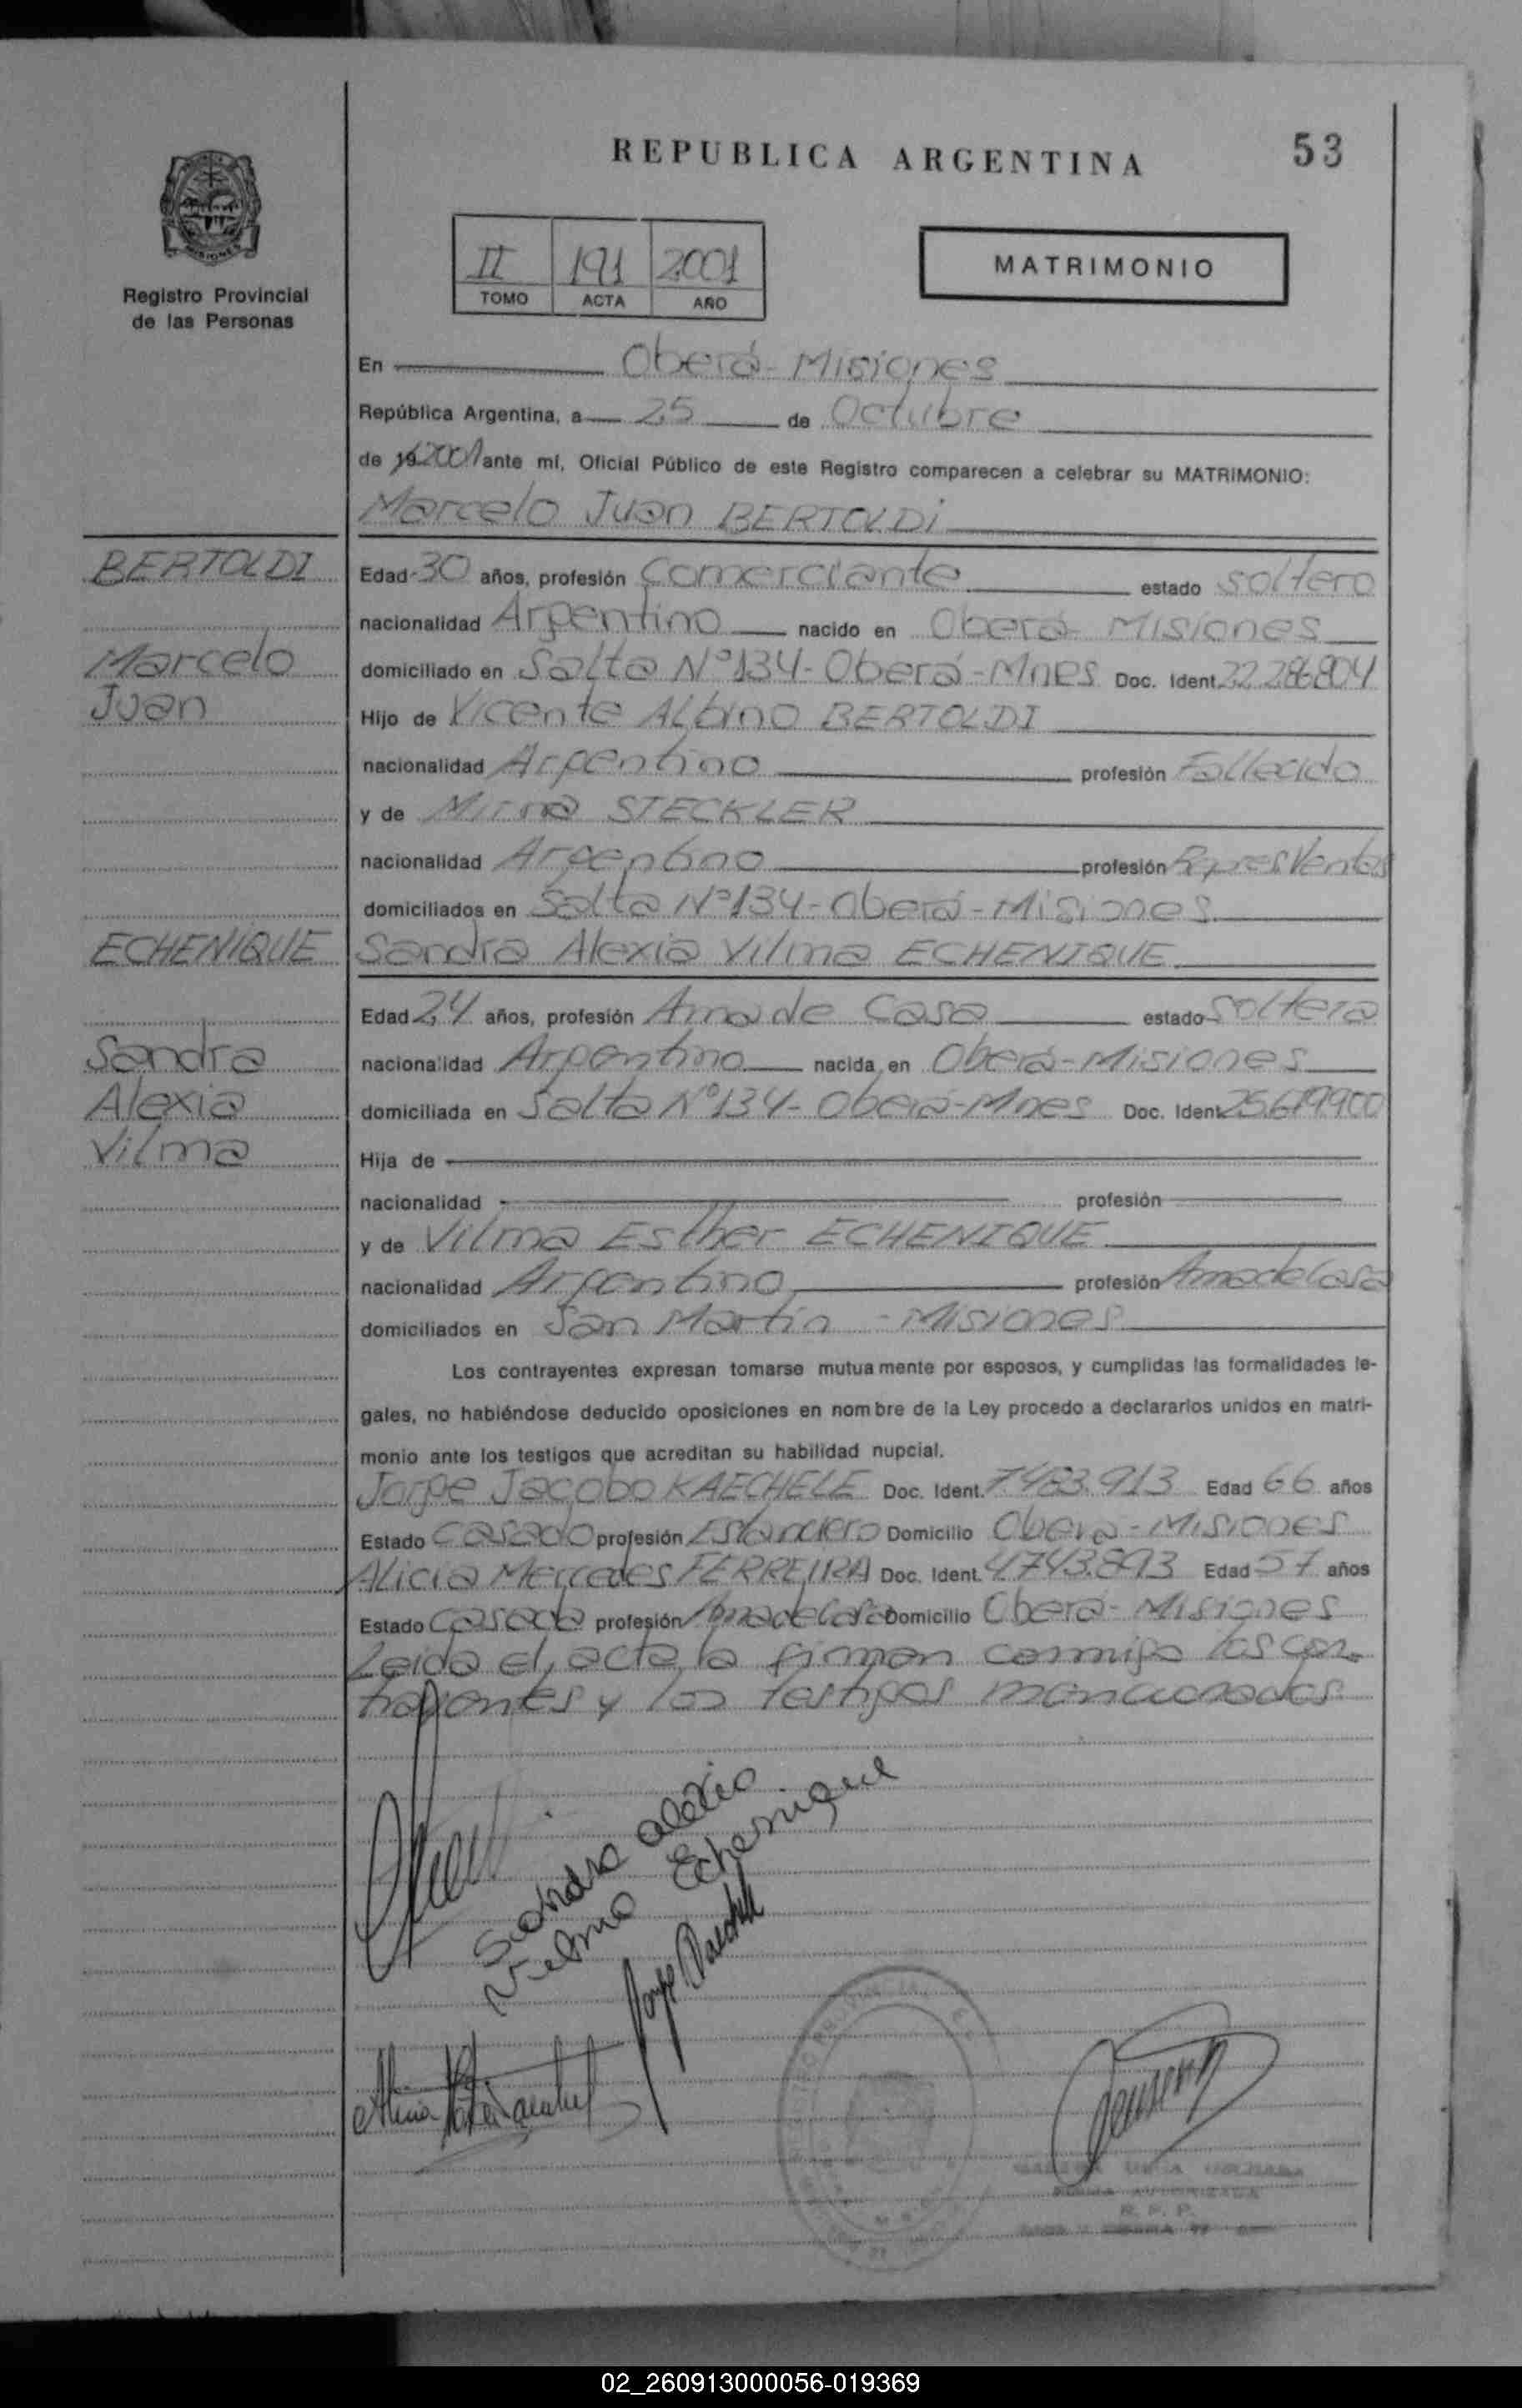 REPUBLICA ARGENTINA
53
Registro Provincial
de las Personas
II 191 2001
TOMO ACTA AÑO
MATRIMONIO
En Oberá - Misiones
República Argentina, a 25 de Octubre
de 19 2001 ante mí, Oficial Público de este Registro comparecen a celebrar su MATRIMONIO:
Marcelo Juan BERTOLDI
BERTOLDI
Marcelo
Juan
Edad 30 años, profesión Comerciante estado soltero
nacionalidad Argentino nacido en Oberá - Misiones
domiciliado en Salta Nº 134 - Oberá - Mnes Doc. Ident. 22.286.804
Hijo de Vicente Albino BERTOLDI
nacionalidad Argentino profesión Fallecido
y de Mirna STECKLER
nacionalidad Argentino profesión Repres Ventas
domiciliados en Salta Nº 134 - Oberá - Misiones
ECHENIQUE
Sandra
Alexia
Vilma
Sandra Alexia Vilma ECHENIQUE
Edad 24 años, profesión Ama de Casa estado soltera
nacionalidad Argentino nacida en Oberá - Misiones
domiciliada en Salta Nº 134 - Oberá - Mnes Doc. Ident.
Hija de
nacionalidad profesión
y de Vilma Esther ECHENIQUE
nacionalidad Argentino profesión Ama de Casa
domiciliados en San Martin - Misiones
Los contrayentes expresan tomarse mutuamente por esposos, y cumplidas las formalidades le-
gales, no habiéndose deducido oposiciones en nombre de la Ley procedo a declararlos unidos en matri-
monio ante los testigos que acreditan su habilidad nupcial.
Jorge Jacobo KAECHELE Doc. Ident. 7.483.913 Edad 66 años
Estado Casado profesión Estanciero Domicilio Oberá - Misiones
Alicia Mercedes FERREIRA Doc. Ident. 4.743.893 Edad 57 años
Estado Casada profesión Ama de Casa Domicilio Oberá - Misiones
Leida el acta la firman conmigo los con-
trayentes y los testigos mencionados
Sandra Alexia
Vilma Echenique
FIRMA AUTORIZADA
R. P. P.
02_260913000056-019369